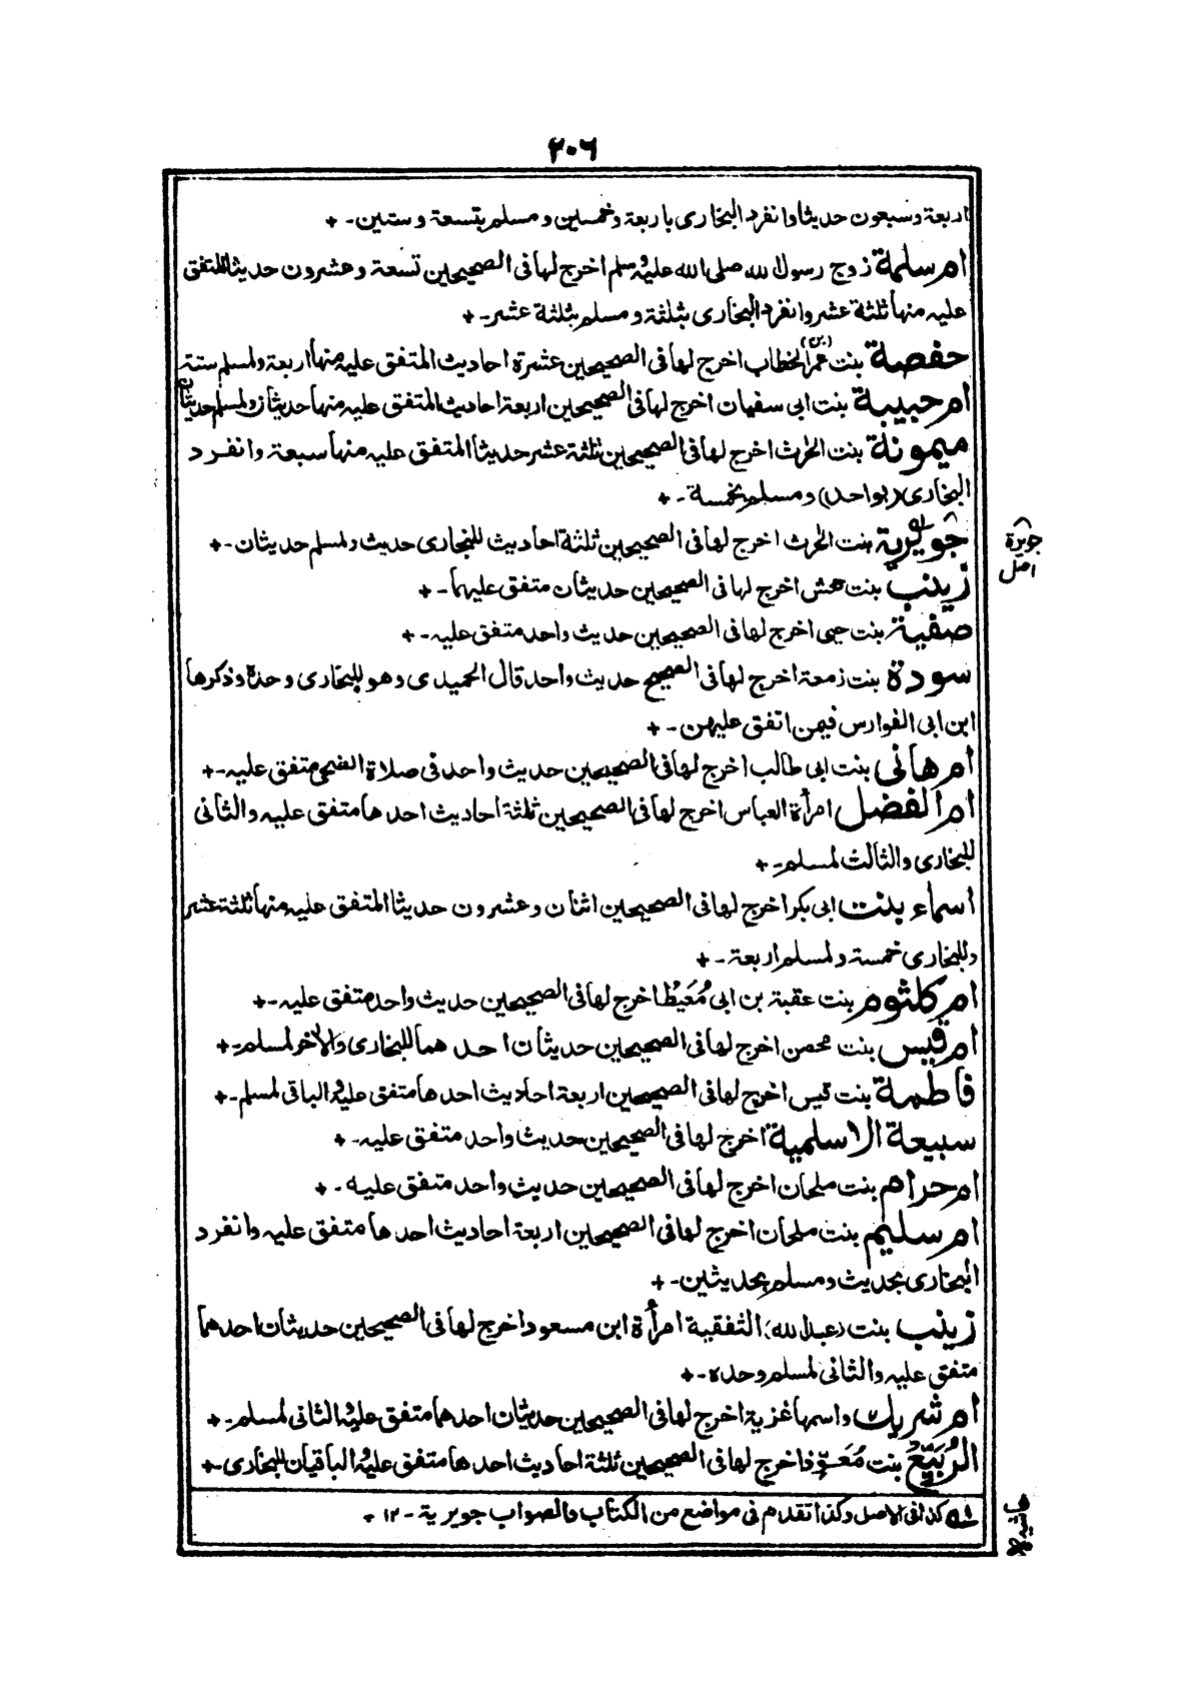 ٢٠٦
اربعة وسبعون حديثا وانفرد البخارى باربعة وخمسين ومسلم بتسعة وستين-+
ام سلمة زوج رسول الله صلى الله عليه وسلم اخرج لها فى الصحيحين تسعة وعشرون حديثا المتفق
عليه منها ثلثة عشر وانفرد البخارى بثلثة ومسلم بثلثة عشر-+
حفصة بنت عمر (بن) الخطاب اخرج لها فى الصحيحين عشرة احاديث المتفق عليه منها اربعة ولمسلم ستة
ام حبيبة بنت ابى سفيان اخرج لها فى الصحيحين اربعة احاديث المتفق عليه منها حديثان ولمسلم حديثان
ميمونة بنت الحرث اخرج لها فى الصحيحين ثلثة عشر حديثا المتفق عليه منها سبعة وانفرد
البخارى (بواحد) ومسلم بخمسة-+
جويرية بنت الحرث اخرج لها فى الصحيحين ثلثة احاديث للبخارى حديث ولمسلم حديثان-+
جويرة
اصل
زينب بنت جحش اخرج لها فى الصحيحين حديثان متفق عليهما-+
صفية بنت حيى اخرج لها فى الصحيحين حديث واحد متفق عليه-+
سودة بنت زمعة اخرج لها فى الصحيح حديث واحد قال الحميدى وهو للبخارى وحدة وذكرها
ابن ابى الفوارس فيمن اتفق عليهن-+
ام هانى بنت ابى طالب اخرج لها فى الصحيحين حديث واحد فى صلاة الضحى متفق عليه-+
ام الفضل امرأة العباس اخرج لها فى الصحيحين ثلثة احاديث احدها متفق عليه والثانى
للبخارى والثالث لمسلم-+
اسماء بنت ابى بكر اخرج لها فى الصحيحين اثنان وعشرون حديثا المتفق عليه منها ثلثة عشر
وللبخارى خمسة ولمسلم اربعة-+
ام كلثوم بنت عقبة بن ابى مُعَيْط اخرج لها فى الصحيحين حديث واحد متفق عليه-+
ام قيس بنت محصن اخرج لها فى الصحيحين حديثان احدهما للبخارى والآخر لمسلم-+
فاطمة بنت قيس اخرج لها فى الصحيحين اربعة احاديث احدها متفق عليه والباقى لمسلم-+
سبيعة الاسلمية اخرج لها فى الصحيحين حديث واحد متفق عليه-+
ام حرام بنت ملحان اخرج لها فى الصحيحين حديث واحد متفق عليه-+
ام سليم بنت ملحان اخرج لها فى الصحيحين اربعة احاديث احدها متفق عليه وانفرد
البخارى بحديث ومسلم بحديثين-+
زينب بنت (عبد الله) الثقفية امرأة ابن مسعود اخرج لها فى الصحيحين حديثان احدهما
متفق عليه والثانى لمسلم وحده-+
ام شريك واسمها غزية اخرج لها فى الصحيحين حديثان احدهما متفق عليه والثانى لمسلم-+
الرُبَيّع بنت مُعَوّذ اخرج لها فى الصحيحين ثلثة احاديث احدها متفق عليه والباقيان للبخارى-+
كذا فى الاصل وكذا تقدم فى مواضع من الكتاب والصواب جويرية-١٢+
حاشية